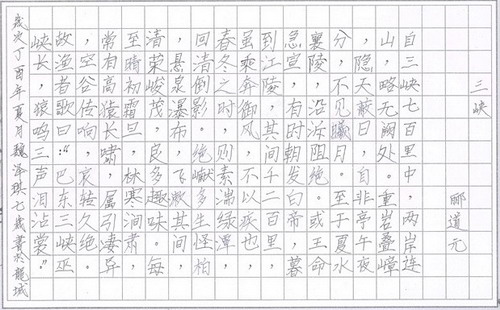 三峡
郦道元
自三峡七百里中，两岸连
山，略无阙处。重岩叠嶂
，隐天蔽日，自非亭午夜
分，不见曦月。至于夏水
襄陵，沿泝阻绝。或王命
急宣，有时朝发白帝，暮
到江陵，其间千二百里，
虽乘奔御风，不以疾也。
春冬之时，则素湍绿潭，
回清倒影，绝巘多生怪柏
，悬泉瀑布，飞漱其间，
清荣峻茂，良多趣味。每
至晴初霜旦，林寒涧肃，
常有高猿长啸，属引凄异
，空谷传响，哀转久绝。
故渔者歌曰：“巴东三峡巫
峡长，猿鸣三声泪沾裳。”
岁次丁酉年夏月魏泽琪七岁書於龍城